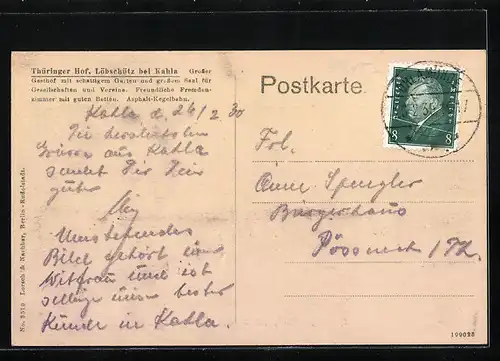 Thüringer Hof, Löbschütz bei Kahla Großer
Gasthof mit schattigem Garten und großem Saal für
Gesellschaften und Vereine. Freundliche Fremden-
zimmer mit guten Betten. Asphalt-Kegelbahn.
Postkarte
DEUTSCHES REICH
8 8
Kahla d. 26/2 30
Die herzlichsten
Grüsse aus Kahla
sendet Dir Dein
guter
Umstehendes
Bild gehört einer
Witfrau und ist
selbige unser bester
Kunde in Kahla.
Frl.
Spengler
Bürgerhaus
Pössneck i/Th.
No. 9519 Lorsch & Nachbar, Berlin-Rudolstadt.
199028